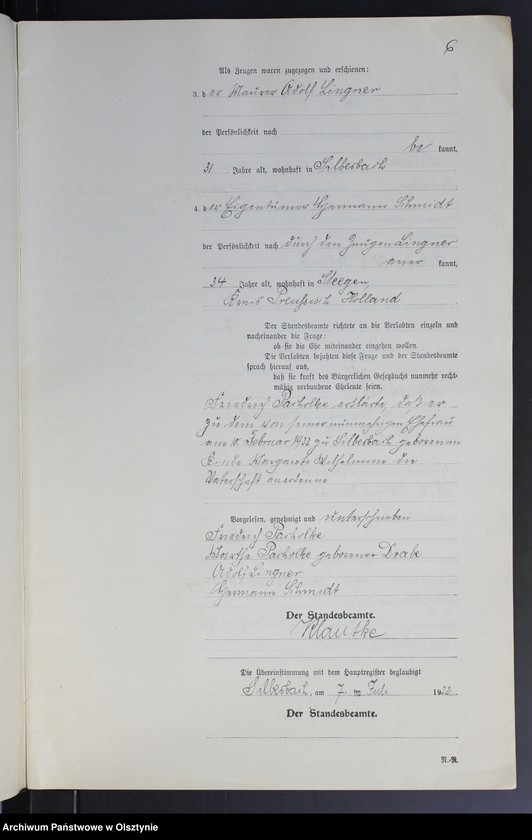 6
Als Zeugen waren zugezogen und erschienen:
3. der Maurer Adolf Lingner
der Persönlichkeit nach
be kannt,
31 Jahre alt, wohnhaft in Silberbach
4. der Eigentümer Hermann Schmidt
der Persönlichkeit nach durch den Zeugen Lingner
aner kannt,
34 Jahre alt, wohnhaft in Steegen,
Kreis Preußisch Holland
Der Standesbeamte richtete an die Verlobten einzeln und
nacheinander die Frage:
ob sie die Ehe miteinander eingehen wollen.
Die Verlobten bejahten diese Frage und der Standesbeamte
sprach hierauf aus,
daß sie kraft des Bürgerlichen Gesetzbuchs nunmehr recht-
mäßig verbundene Eheleute seien.
Friedrich Pacholke erklärte, daß er
zu dem von seiner nunmehrigen Ehefrau
am Februar zu Silberbach geborenen
Kinde Margarete Wilhelmine die
Vaterschaft anerkenne
Vorgelesen, genehmigt und unterschrieben
Friedrich Pacholke
Martha Pacholke geborene
Adolf Lingner
Hermann Schmidt
Der Standesbeamte.
Klautke
Die Übereinstimmung mit dem Hauptregister beglaubigt
Silberbach, am 7. Juli 1922
Der Standesbeamte.
N.-R.
Archiwum Państwowe w Olsztynie